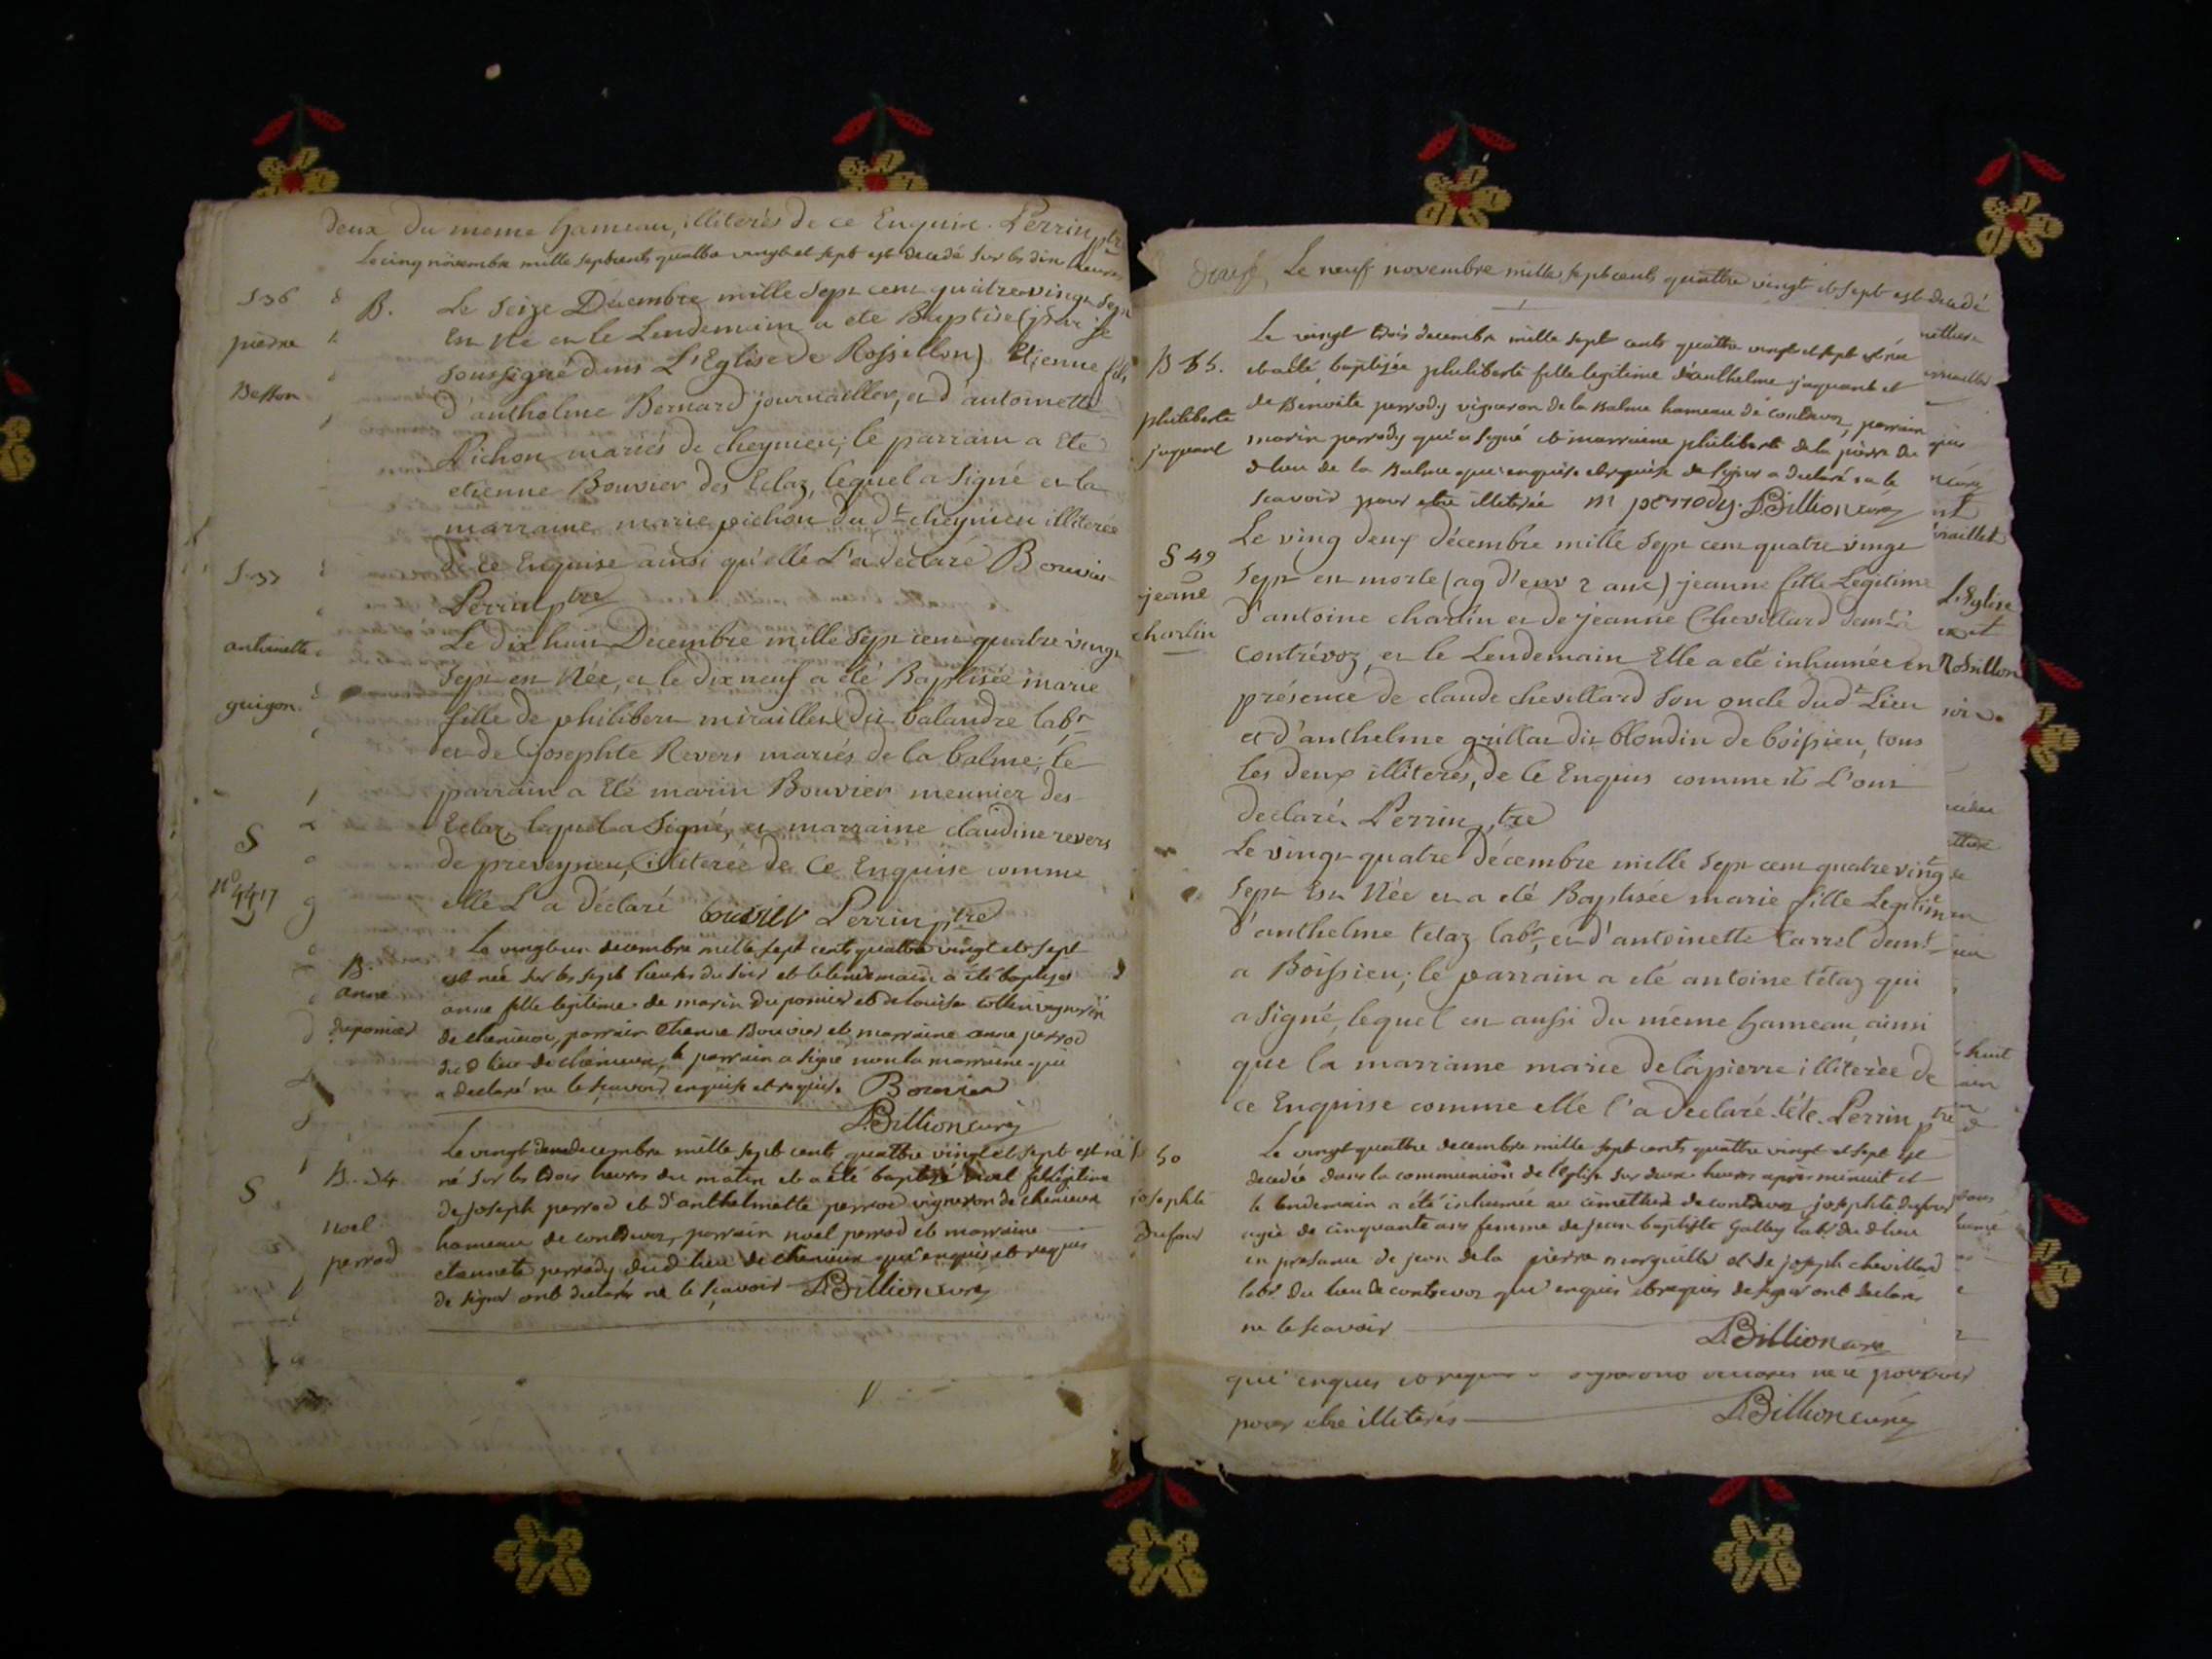 deux du meme hameau, illiterés de ce Enquise. Perrin ptre
Le cinq novembre mille septcents quattre vingt et sept est decedé sur les dix heures
S 36
pierre
Besson
B. Le seize Décembre mille sept cent quatre vingt sept
est Né et le Lendemain a eté Baptisé (par je
soussigné dans L'Eglise de Rossillon) Etienne fils
d'anthelme Bernard journaillier, et d'antoinette
Pichon mariés de cheynieu; le parrain a Eté
etienne Bouvier des Eclaz, lequel a signé et la
marraine marie pichon du dt cheynieu illiterée
de ce Enquise ainsi qu'elle L'a declaré Bouvier
Perrin ptre
S 37
antoinette
guigon
Le dix huit Decembre mille sept cent quatre vingt
sept est Née, et le dix neuf a été Baptisée marie
fille de philibert miraillet dit balandre labr
et de Josephte Revers mariés de la balme; le
parrain a Eté marin Bouvier meunier des
Eclaz, lequel a signé, et marraine claudine revers
de preveysieu, illiterée de ce Enquise comme
elle L'a déclaré bouvier Perrin ptre
S
B.
anne
duponier
Le vingt un decembre mille sept cents quattre vingt et sept
est née sur les sept heures du soir et le lendemain a été baptisée
anne fille legitime de marin duponier et de louise collin vigneron
de chenieux, parrain Etienne Bouvier et marraine anne perrod
du d lieu de chenieux, le parrain a signé non la marraine qui
a declaré ne le scavoir enquise et requise Bouvier
Billion curé
S
B. 34
noel
perrod
Le vingt deux decembre mille sept cents quattre vingt et sept est né
né sur les trois heures du matin et a été baptisé noel fils legitime
de joseph perrod et d'anthelmette perrod vigneron de chenieux
hameau de contrevoz, parrain noel perrod et marraine
etiennete perrody du d lieu de chenieux qui enquis et requis
de signer ont declarés ne le scavoir Billion curé
Le neuf novembre mille sept cents quattre vingt et sept est decedé
B 35.
philiberte
jaquant
Le vingt trois decembre mille sept cents quattre vingt et sept est née
et a été baptisée philiberte fille legitime d'anthelme jaquant et
de Benoite perrody vigneron de la Balme hameau de contrevoz, parrain
marin perrody qui a signé et marraine philiberte de la pierre du
d lieu de la Balme qui enquise et requise de signer a declaré ne le
scavoir pour etre illiterée m perrody. Billion curé
S 49
jeane
chardin
Le ving deux décembre mille sept cent quatre vingt
sept est morte (ag d'env 2 ans) jeanne fille Legitime
d'antoine chardin et de jeanne Chevillard demts a
contrévoz, et le Lendemain Elle a eté inhumée en
présence de claude chevillard son oncle dudt Lieu
et d'anthelme grillat dit blondin de boissieu, tous
les deux illiterés, de ce Enquis comme ils L'ont
declaré. Perrin, ptre
Le vingt quatre décembre mille sept cent quatre vingt
sept Est Née et a eté Baptisée marie fille Legitime
d'anthelme tetaz labr, et d'antoinette Carrel demts
a Boissieu; le parrain a eté antoine tétaz qui
a signé, lequel est aussi du même hameau, ainsi
que la marraine marie delapierre illiterée de
ce Enquise comme elle l'a declaré. téte. Perrin ptre
S 50
josephte
Dufour
Le vingt quattre decembre mille sept cents quattre vingt et sept est
decedée dans la communion de l'eglise sur deux heures après minuit et
le lendemain a été inhumée au cimettiere de contrevoz josephte dufour
agée de cinquante ans femme de jean baptiste Gallay labr du d lieu
en presance de jean dela pierre marguillier et de joseph chevillard
labr du lieu de contrevoz qui enquis et requis de signer ont declarés
ne le scavoir Billion curé
L'Eglise
Rossillon
qui enquis et requis
pour etre illiterés Billion curé